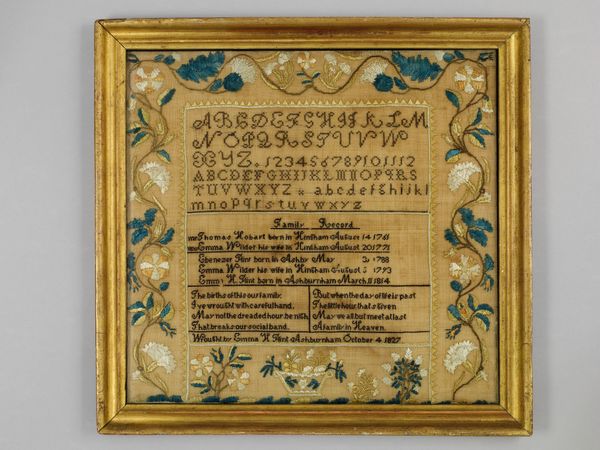 ABCDEFGHIJKLM
NOPQRSTUVW
XYZ. 123456789101112
ABCDEFGHIJKLMNOPQRS
TUVWXYZ abcdefghijkl
mnopqrstuvwxyz
Family Record
Mr Thomas Hobart born in Hingham August 14 1761
Emma Wilder his wife in Hingham August 20 1771
Ebenezer Flint born in Ashby May 1788
Emma Wilder his wife in Hingham August 1793
Emma H. Flint born in Ashburnham March 1814
The births of this our family.
I've wrought with careful hand.
May not the dreaded hour be nigh
That breaks our social band.
But when the day of life is past
The little hour that's given
May we all but meet at last
A family in Heaven.
Wrought by Emma H Flint Ashburnham October 4 1827